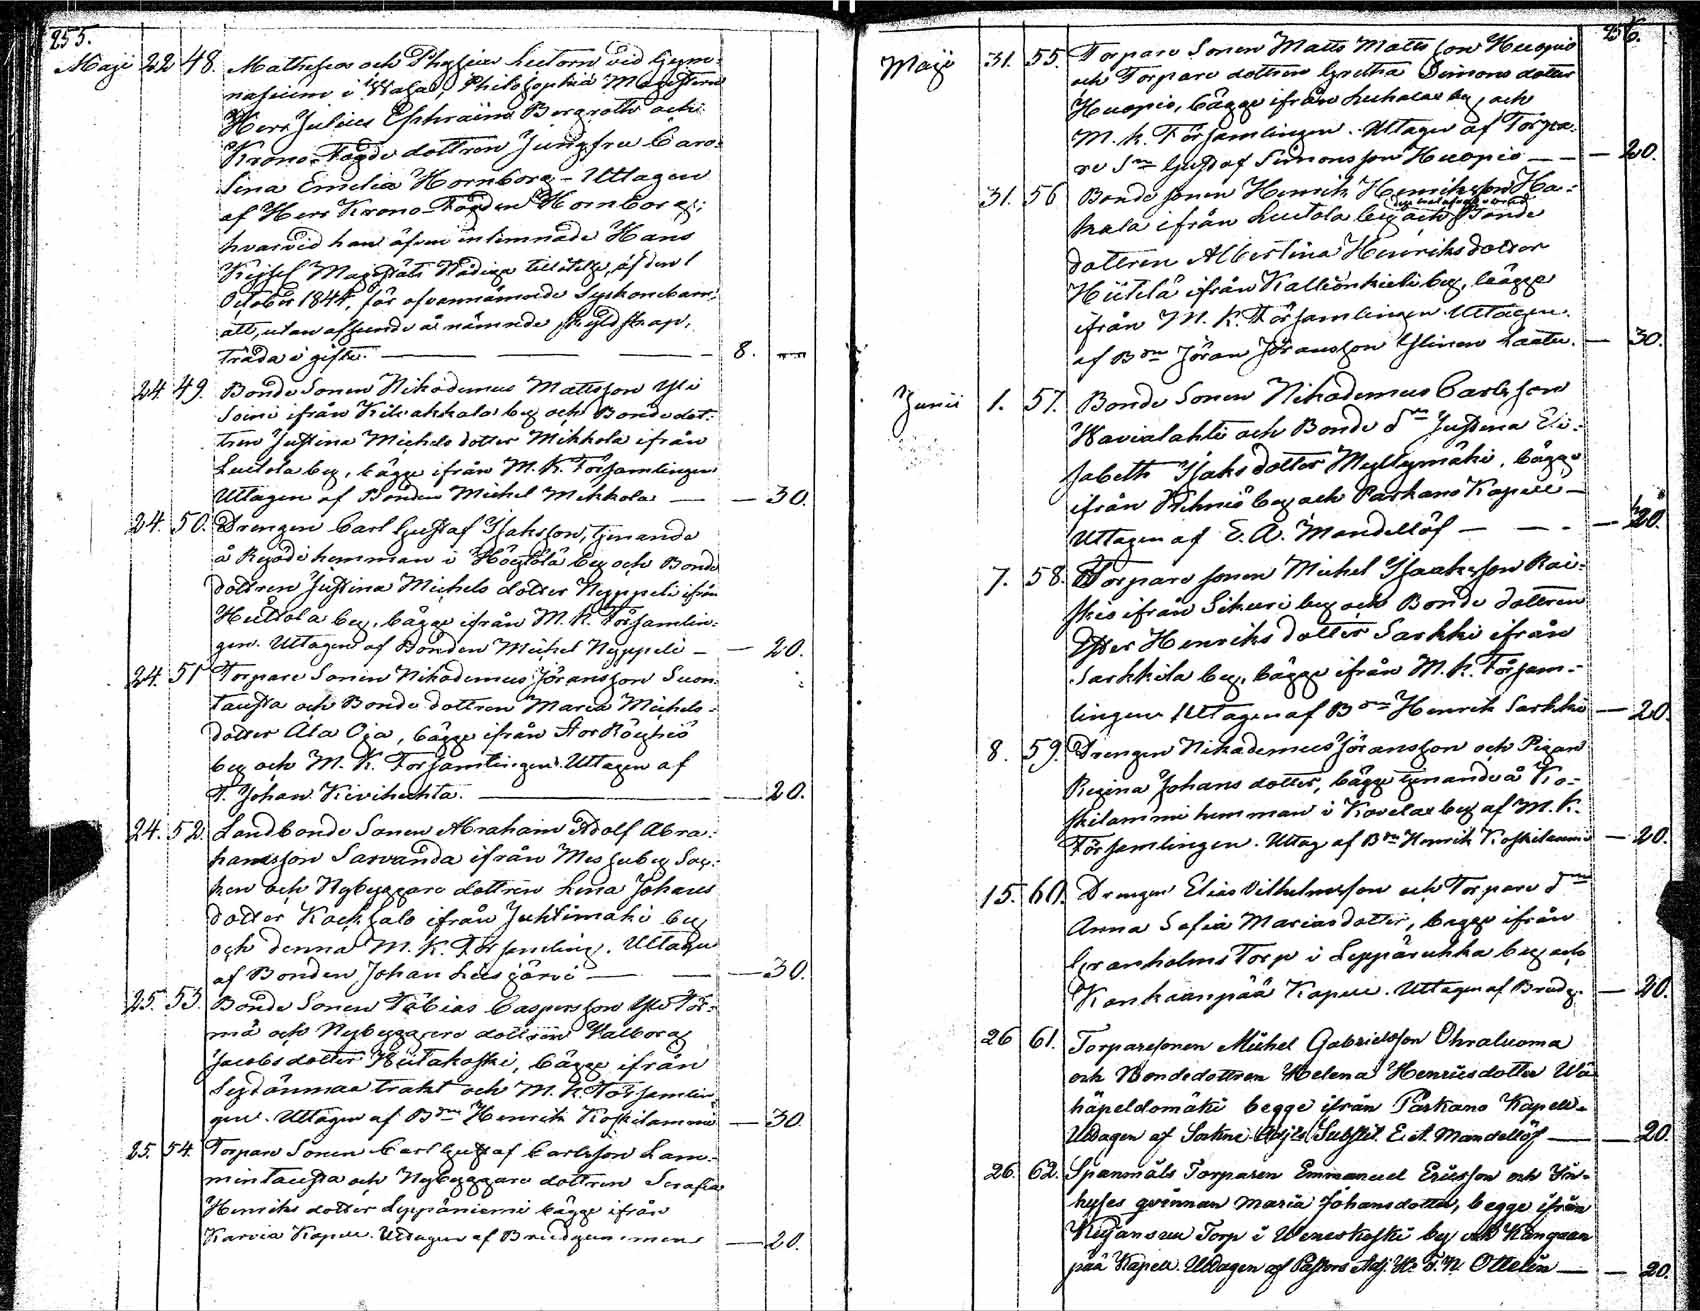 255.
Maji 22 48. Mathesеos och Physices Lectorn vid Gym-
nasium i Wasa, Philosophiæ Magistern
Herr Julius Ephraim Bergroth och
Krono-Fogde dottren Jungfru Caro-
lina Emelia Hornborg - Uttagen
af Herr Krono-Fogden Hornborg;
hvarvid han äfven inlemnade Hans
Kejserl Majestäts Nådiga tillåtelse, af den 1
October 1844, för ofvannämnde Syskonebarn,
att, utan afseende å nämnde skyldskap,
träda i gifte. — — — 8. —
24 49. Bonde Sonen Nikodemus Mattsson Yli
Soini ifrån Kilvakkala by och Bonde dot-
tren Justina Michels dotter Mikkola ifrån
Luttola by, bägge ifrån M. K. Församlingen
Uttagen af Bonden Michel Mikkola — — 30.
24. 50. Drengen Carl Gustaf Isaksson, tjenande
å Röyöde hemman i Höytölä by och Bonde
dottren Justina Michels dotter Nyppeli ifrån
Huttola by, bägge ifrån M. K. Församlin-
gen. Uttagen af Bonden Michel Nyppeli — — 20.
24. 51 Torpare Sonen Nikodemus Jöransson Suon-
tausta och Bonde dottren Maria Michels-
dotter Ala Oja, bägge ifrån Stor Röyhiö
by och M. K. Församlingen. Uttagen af
T. Johan Kivihuhta. — — 20.
24. 52. Landbonde Sonen Abraham Adolf Abra-
hamsson Sarvanda ifrån Messuby Soc-
ken och Nybyggare dottren Lena Johans
dotter Kacksalo ifrån Juhtimäki by
och denna M. K. Församling. Uttagen
af Bonden Johan Leisjärvi — — 30.
25. 53. Bonde Sonen Tobias Caspersson Yli Tör-
mä och Nybyggare dottren Walborg
Jacobs dotter Kiitakoski, bägge ifrån
Leydänmaa trakt och M. K. Församlin
gen. Uttagen af Bdn Henrik Koskilammi — 30.
25. 54. Torpare Sonen Carl Gustaf Carlsson Lam-
mintausta och Nybyggare dottren Serafia
Henriks dotter Leppäniemi bägge ifrån
Karvia Kapell. Uttagen af Brudgummen — 20.
256.
Maji 31. 55. Torpare Sonen Matts Mattsson Huopio
och Torpare dottren Gretha Simons dotter
Huopio, bägge ifrån Luhalax by, och
M. K. Församlingen. Uttagen af Torpa-
re Sn Gustaf Simonsson Huopio — — 20.
31. 56 Bonde sonen Henrik Henriksson Ha-
kala ifrån Luttola by och Bonde
dottren Albertina Henriks dotter
Hiitelä ifrån Kallionkieli by, bägge
ifrån M. K. Församlingen. Uttagen
af Bdn Jöran Jöransson Ylinen Laatu. — 30.
Junii 1. 57. Bonde Sonen Nikodemus Carlsson
Wavialahti och Bonde dn Justina Eli-
sabeth Isaks dotter Myllymäki, bägge
ifrån Kihniö by och Parkano Kapell —
Uttagen af E. A. Mandellöf — — 20.
7. 58. Torpare sonen Michel Isaaksson Kai-
skio ifrån Sikuri by och Bonde dottren
Ester Henriks dotter Sarkki ifrån
Sarkkila by, bägge ifrån M. K. Försam-
lingen Uttagen af Bdn Henrik Sarkki — 20.
8. 59. Drengen Nikodemus Jöransson och Pigan
Regina Johans dotter, bägge tjenande å Ko-
skilammi hemman i Kovelax by af M. K.
Församlingen. Uttag. af Bdn Henrik Koskilammi — 20.
15. 60. Drengen Elias Vilhelmsson och Torpare dn
Anna Sofia Mariasdotter, begge ifrån
Granholms Torp i Leppäruhka by och
Kankaanpää Kapell. Uttagen af Brudg. — 20.
26 61. Torparesonen Michel Gabrielsson Ohraluoma
och Bondedottren Helena Henriesdotter Wä
häpeldomäki begge ifrån Parkano Kapell.
Uttagen af Sockne Adj. Substit. E. A. Mandellöf — — 20.
26. 62. Spanmåls Torparen Emmanuel Ericsson och In-
hyses qvinnan Maria Johansdotter, begge ifrån
Kiejänsuu Torp i Weneskoski by och Kangaan
pää Kapell. Uttagen af Pastors Adj. Hr F. N. Ottelin — — 20.